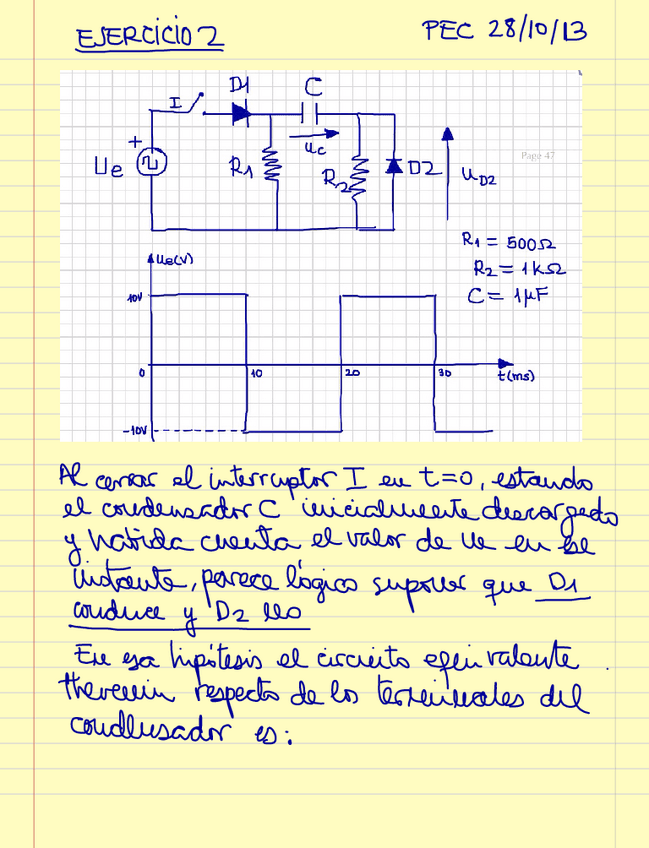 EJERCICIO 2
PEC 28/10/13
D1
C
I
+
Ue
R1
uc
R2
D2
uD2
Page 47
R1 = 500Ω
R2 = 1kΩ
C = 1μF
ue(V)
10V
0
10
20
30
t(ms)
-10V
Al cerrar el interruptor I en t=0, estando
el condensador C inicialmente descargado
y habida cuenta el valor de ue en ese
instante, parece lógico suponer que D1
conduce y D2 no
En esa hipótesis el circuito equivalente
thevenin respecto de los terminales del
condensador es: